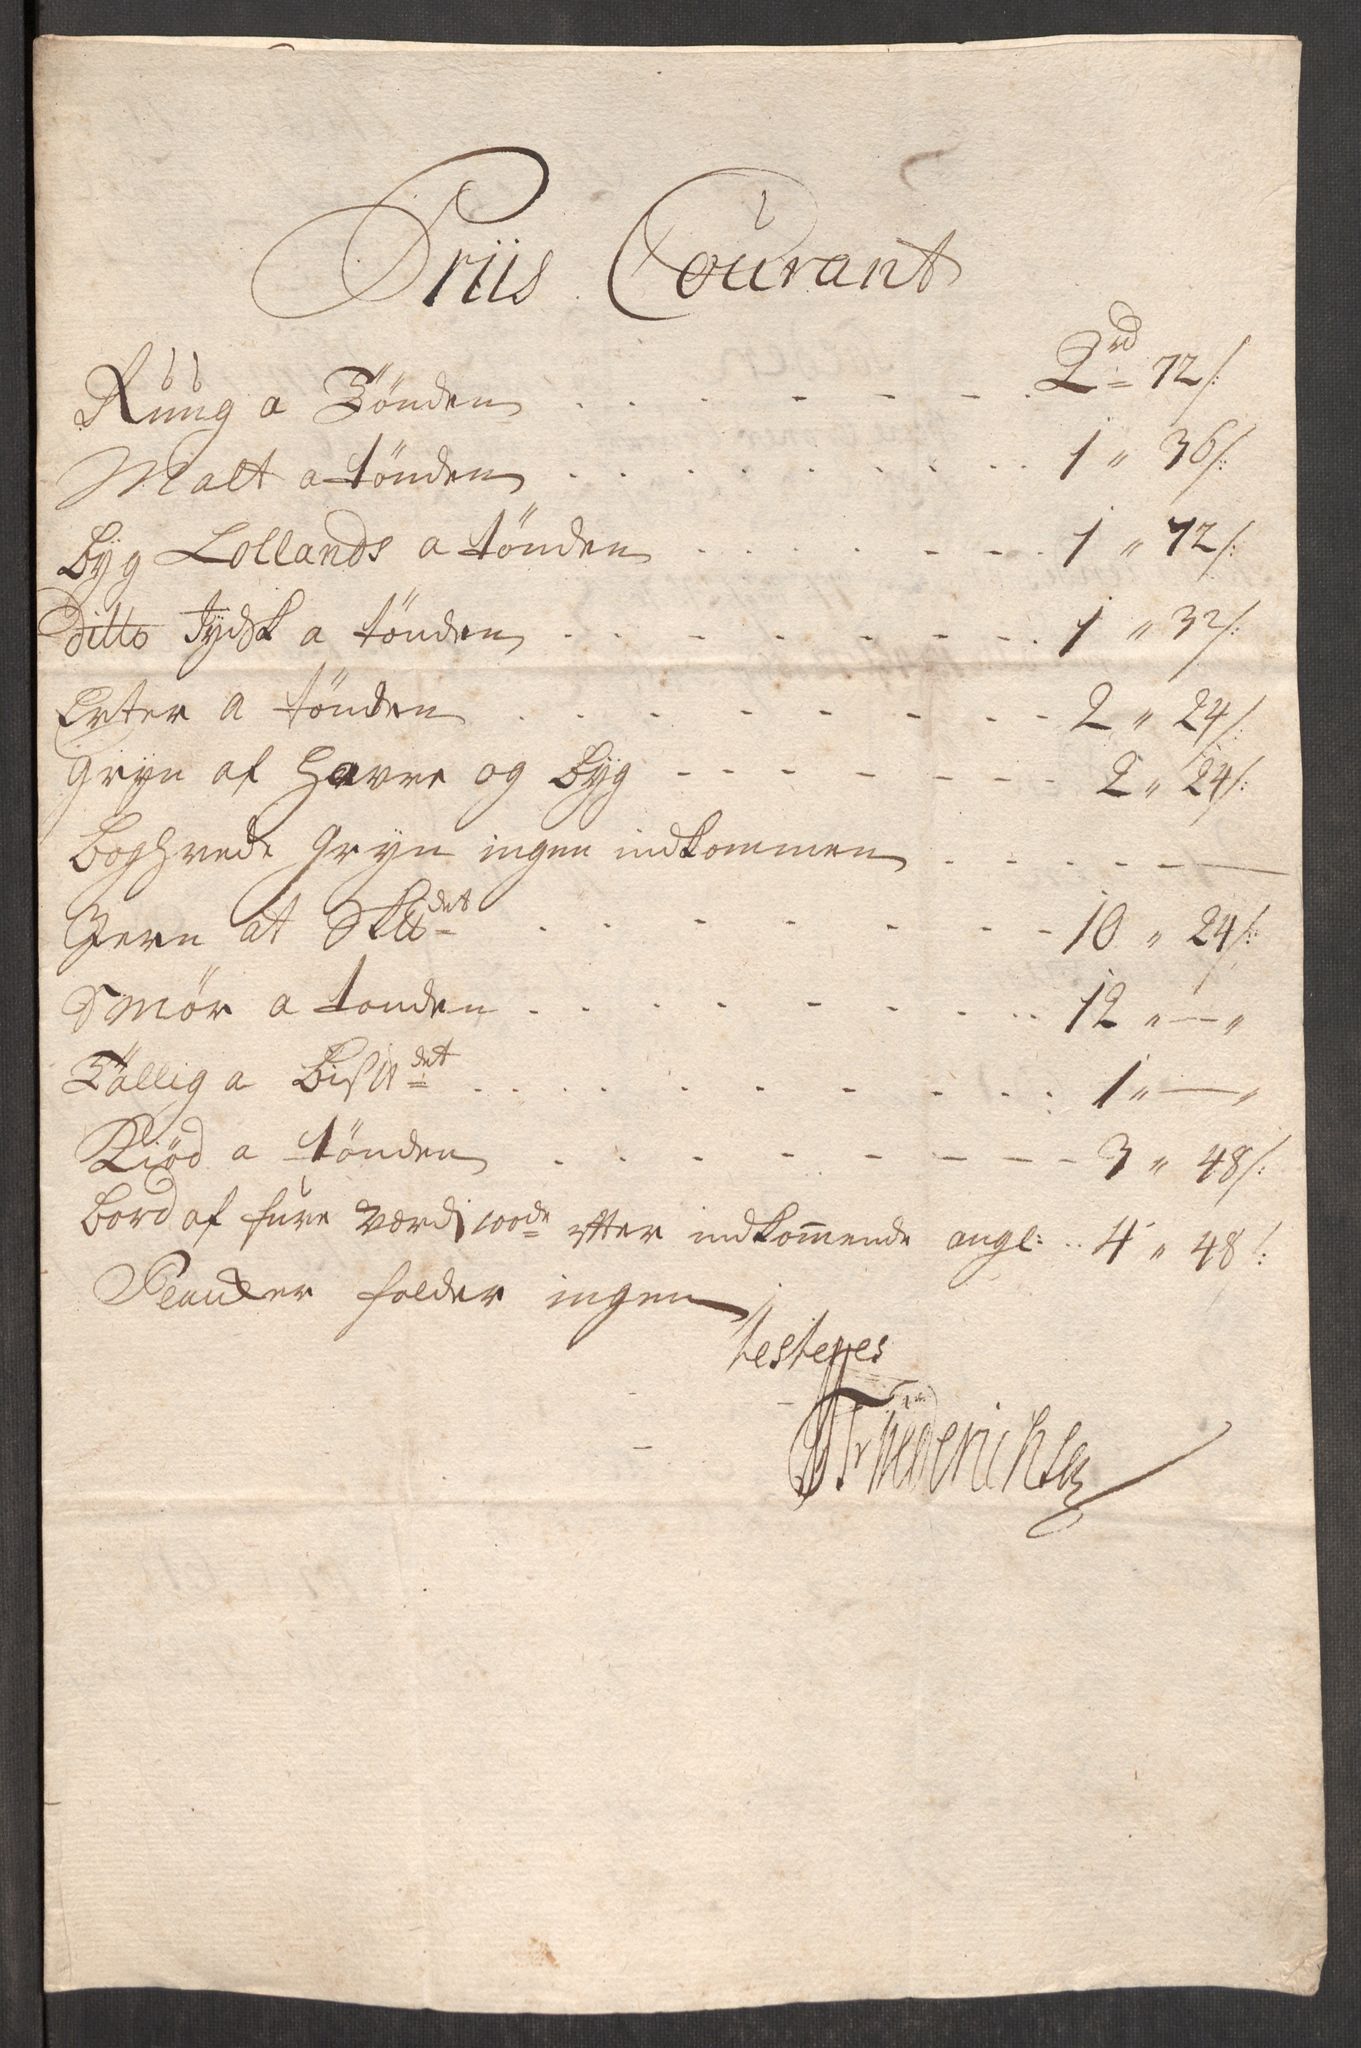 Priis Courant
Ruug a Tönden . . . . . . . . 2 rd 72 /:
Malt a tönden . . . . . . . . 1 " 36 /:
Byg Lollands a tönden . . . . . . . 1 " 72 /:
Ditto Jydsk a tönden . . . . . . . . 1 " 32 /:
Erter a tönden . . . . . . . . 2 " 24 /:
Gryn af Havre og Byg - - - - - - - 2 " 24 /:
Boghvede Gryn ingen indkommen . . . . . —
Jern at Skll det . . . . . . . . 10 " 24 /:
Smör a tonden . . . . . . . . 12 " — "
Tallig a Bis℔ det . . . . . . . . 1 " — "
Kiöd a tönden . . . . . . . . 3 " 48 /:
Bord af fure Værdj 100de efter indkommende angl: . . 4 " 48 /:
Plancker falder ingen
testeres
Friederichsen